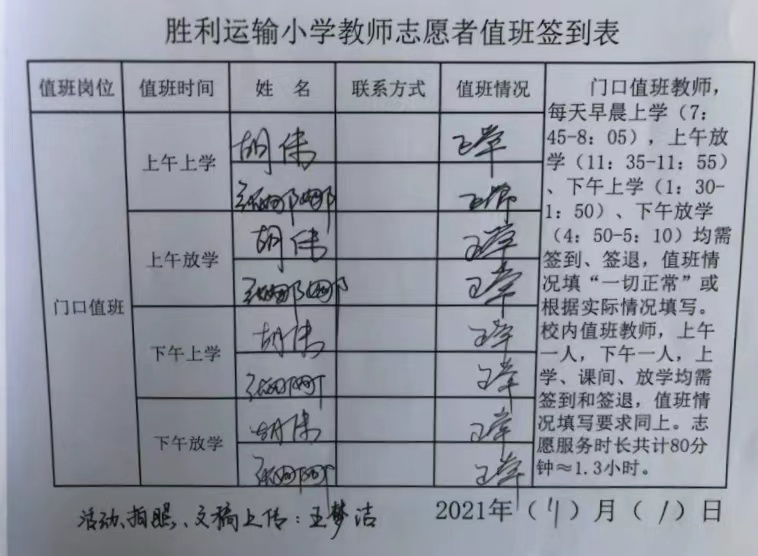 胜利运输小学教师志愿者值班签到表
值班岗位 值班时间 姓 名 联系方式 值班情况
门口值班
上午上学 胡伟 正常
张娜娜 正常
上午放学 胡伟 正常
张娜娜 正常
下午上学 胡伟 正常
张娜娜 正常
下午放学 胡伟 正常
张娜娜 正常
门口值班教师，
每天早晨上学（7：
45-8：05），上午放
学（11：35-11：55）
、下午上学（1：30-
1：50）、下午放学
（4：50-5：10）均需
签到、签退，值班情
况填“一切正常”或
根据实际情况填写。
校内值班教师，上午
一人，下午一人，上
学、课间、放学均需
签到和签退，值班情
况填写要求同上。志
愿服务时长共计80分
钟≈1.3小时。
活动、拍照、文稿上传：王梦洁
2021年（11）月（1）日